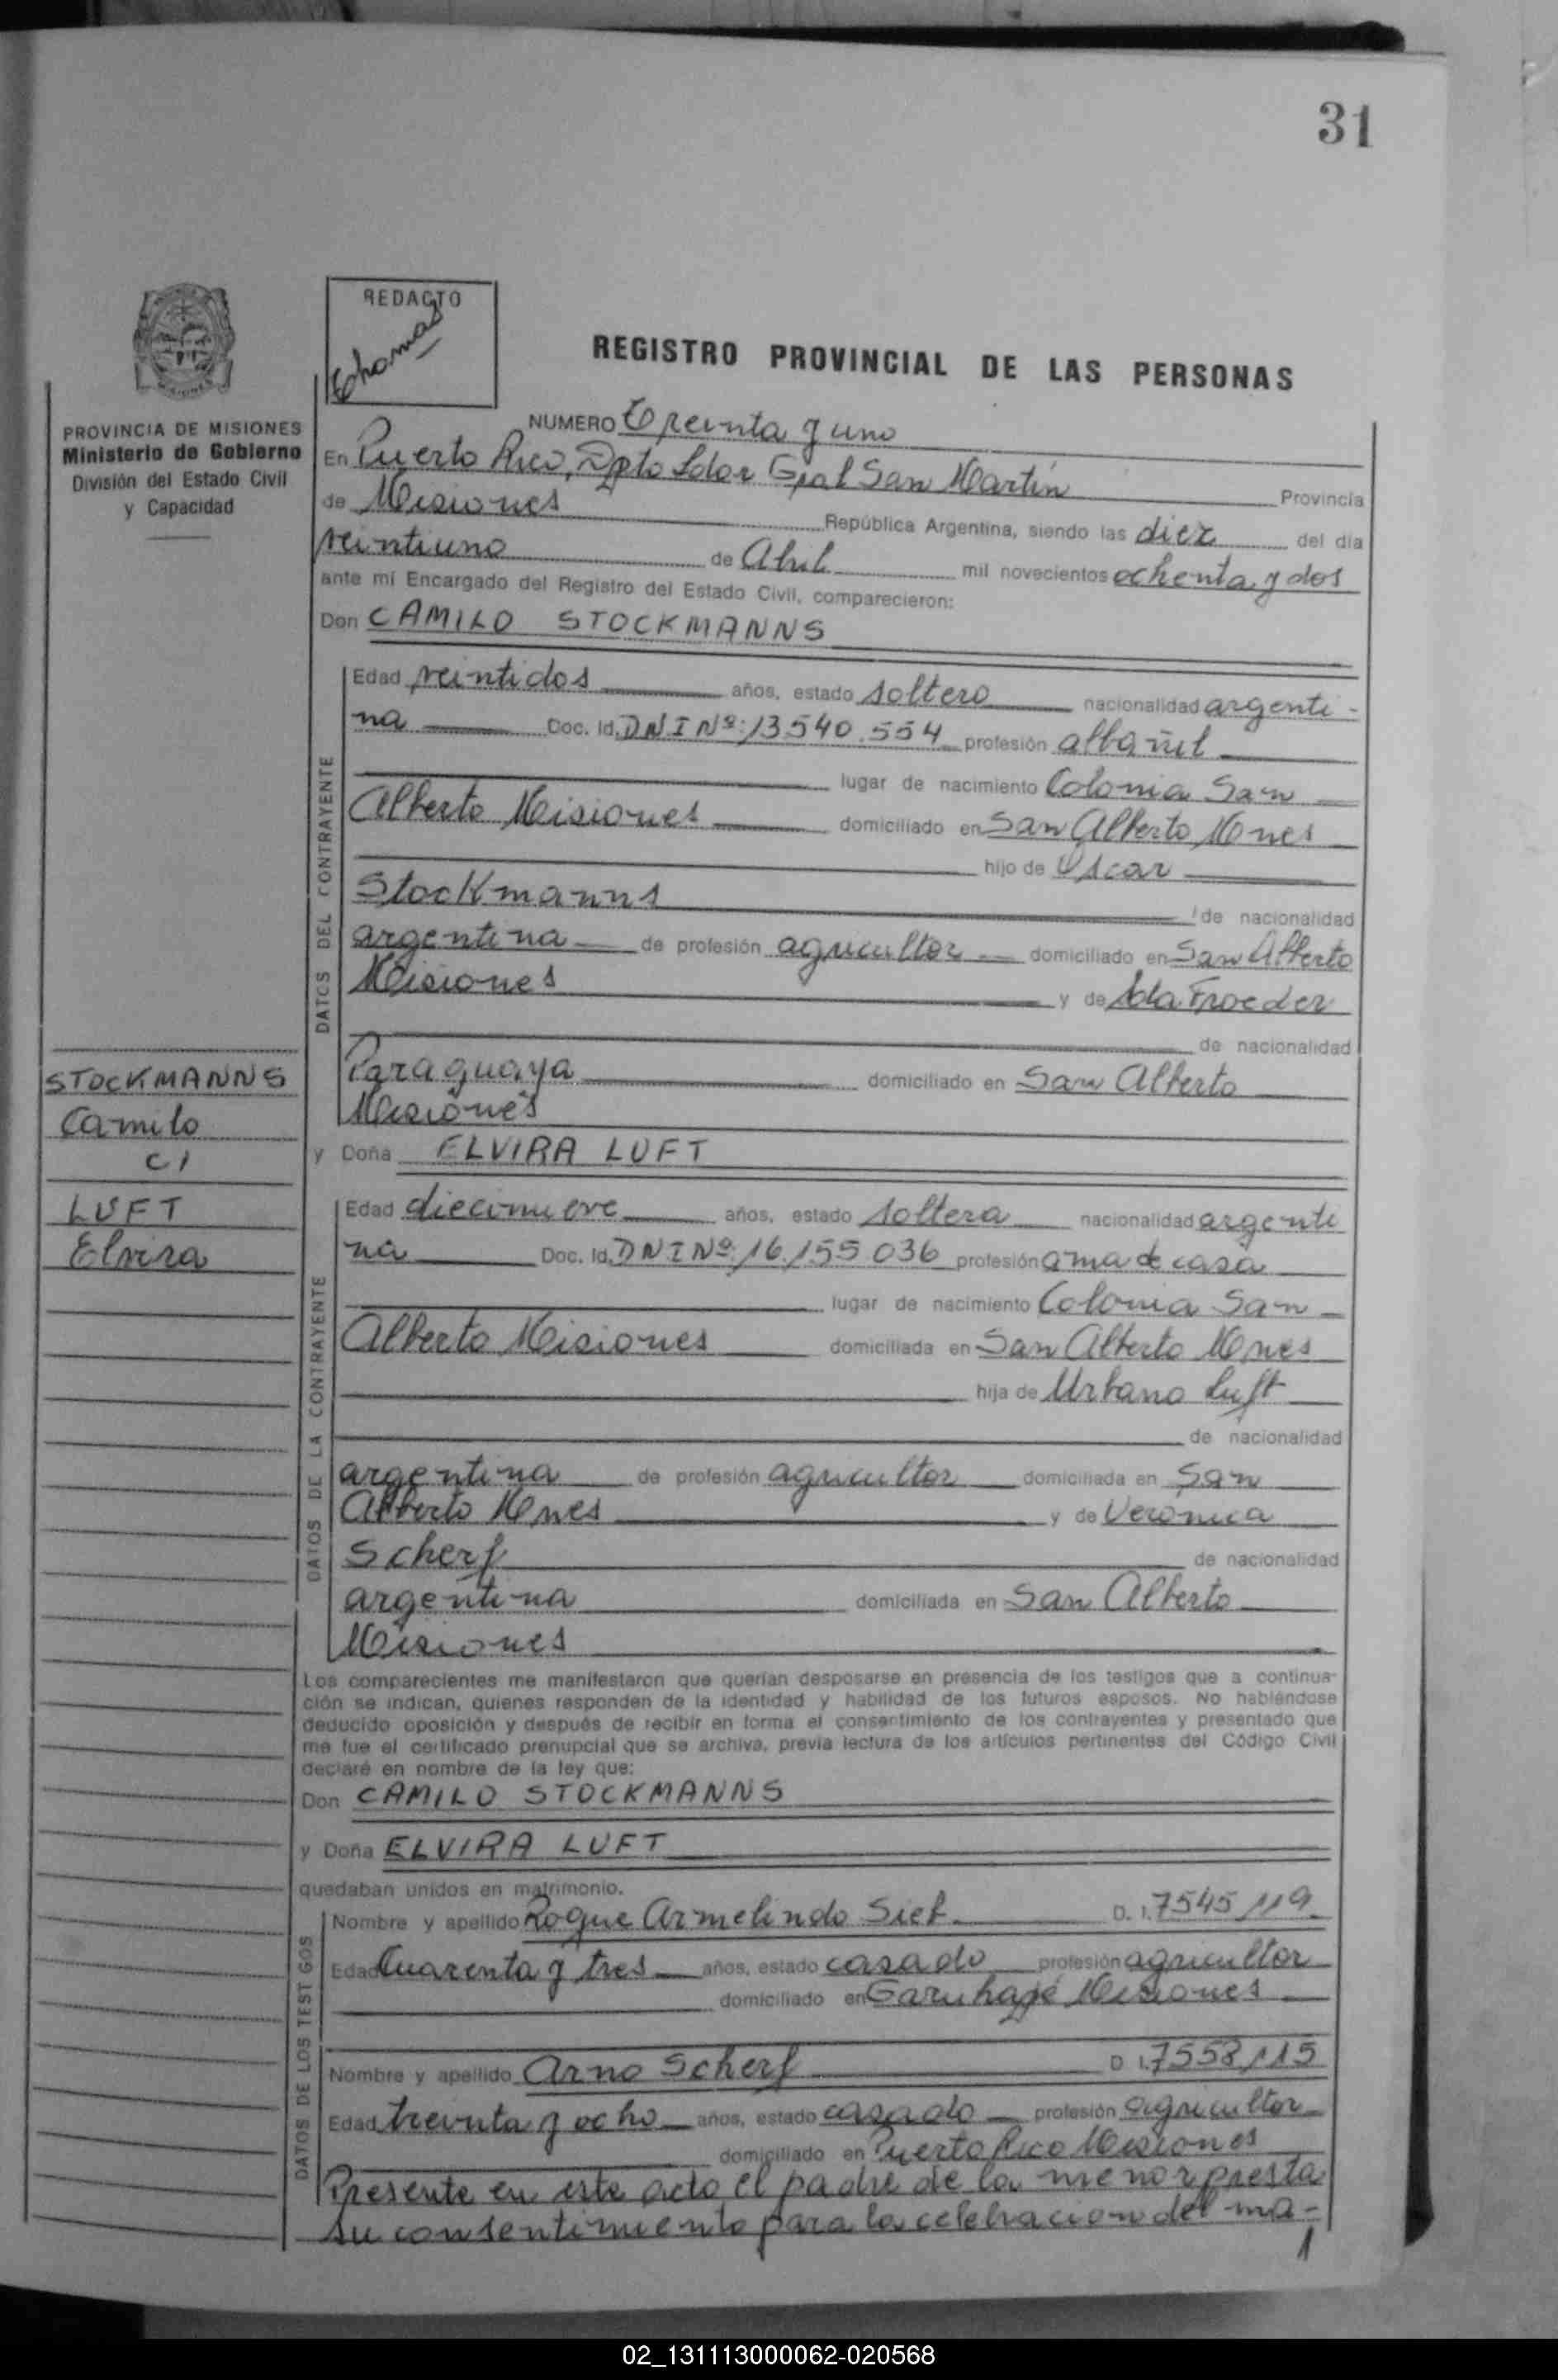 31
REDACTO
Thomas
REGISTRO PROVINCIAL DE LAS PERSONAS
PROVINCIA DE MISIONES
Ministerio de Gobierno
División del Estado Civil
y Capacidad
STOCKMANNS
Camilo
c/
LUFT
Elvira
NUMERO Treinta y uno
En Puerto Rico, Dpto Ldor Gral San Martín Provincia
de Misiones República Argentina, siendo las diez del día
veintiuno de Abril mil novecientos ochenta y dos
ante mí Encargado del Registro del Estado Civil, comparecieron:
Don CAMILO STOCKMANNS
DATOS DEL CONTRAYENTE
Edad veintidos años, estado soltero nacionalidad argenti-
na Doc. Id. DNI Nº: 13540.554 profesión albañil
lugar de nacimiento Colonia San
Alberto Misiones domiciliado en San Alberto Mnes
hijo de Oscar
Stockmanns de nacionalidad
argentina de profesión agricultor domiciliado en San Alberto
Misiones y de Ida Froeder
de nacionalidad
Paraguaya domiciliado en San Alberto
Misiones
y Doña ELVIRA LUFT
DATOS DE LA CONTRAYENTE
Edad diecinueve años, estado soltera nacionalidad argenti
na Doc. Id. DNI Nº: 16.155 036 profesión ama de casa
lugar de nacimiento Colonia San
Alberto Misiones domiciliada en San Alberto Mnes
hija de Urbano Luft
de nacionalidad
argentina de profesión agricultor domiciliada en San
Alberto Mnes y de Veronica
Scherf de nacionalidad
argentina domiciliada en San Alberto
Misiones
Los comparecientes me manifestaron que querían desposarse en presencia de los testigos que a continua-
ción se indican, quienes responden de la identidad y habilidad de los futuros esposos. No habiéndose
deducido oposición y después de recibir en forma el consentimiento de los contrayentes y presentado que
me fue el certificado prenupcial que se archiva, previa lectura de los artículos pertinentes del Código Civil
declaré en nombre de la ley que:
Don CAMILO STOCKMANNS
y Doña ELVIRA LUFT
quedaban unidos en matrimonio.
DATOS DE LOS TESTIGOS
Nombre y apellido Roque Armelindo Sieb D. I. 7545 119
Edad Cuarenta y tres años, estado casado profesión agricultor
domiciliado en Garuhapé Misiones
Nombre y apellido Arno Scherf D I. 7558 115
Edad treinta y ocho años, estado casado profesión agricultor
domiciliado en Puerto Rico Misiones
Presente en este acto el padre de la menor presta
su consentimiento para la celebracion del ma-
02_131113000062-020568